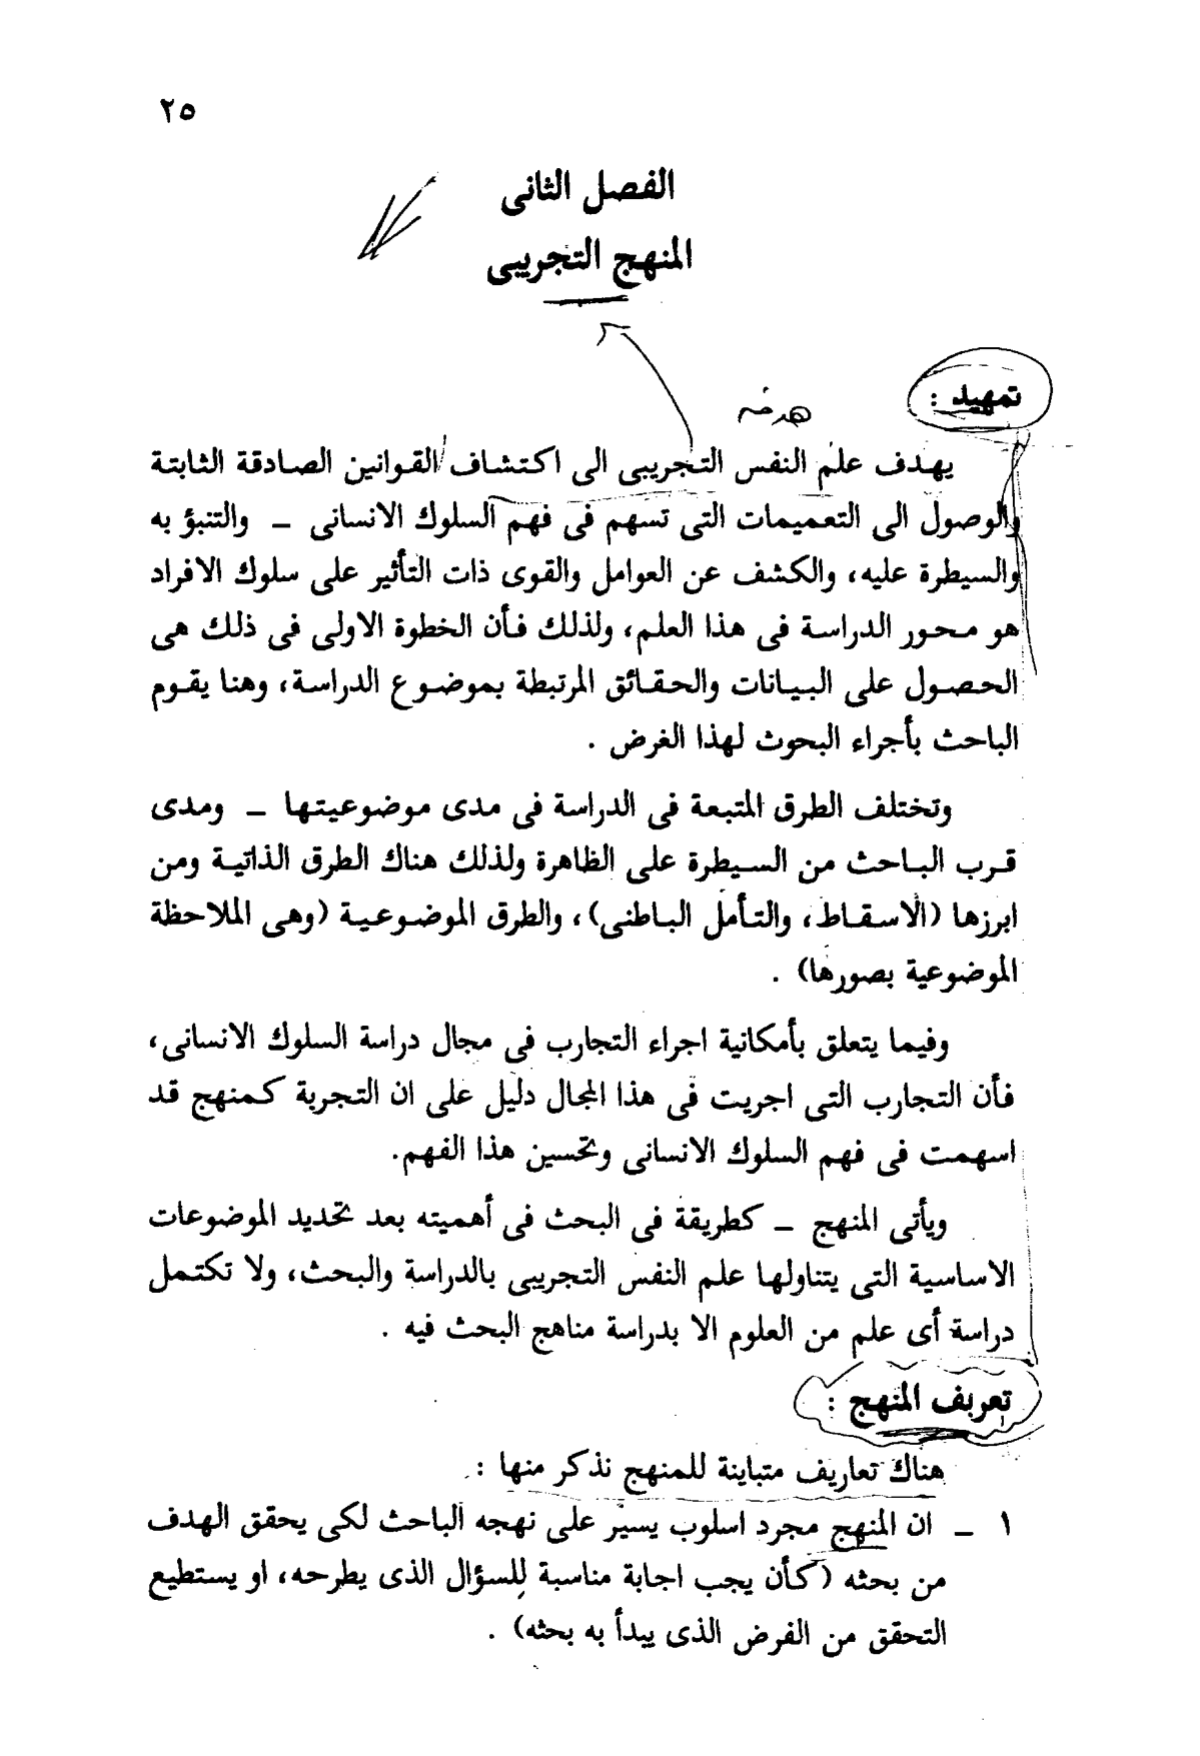 ٢٥
الفصل الثانى
المنهج التجريبى
تمهيد :
هدفه
يهدف علم النفس التجريبى الى اكتشاف القوانين الصادقة الثابتة
والوصول الى التعميمات التى تسهم فى فهم السلوك الانسانى _ والتنبؤ به
والسيطرة عليه، والكشف عن العوامل والقوى ذات التأثير على سلوك الافراد
هو محور الدراسة فى هذا العلم، ولذلك فأن الخطوة الاولى فى ذلك هى
الحصول على البيانات والحقائق المرتبطة بموضوع الدراسة، وهنا يقوم
الباحث بأجراء البحوث لهذا الغرض .
وتختلف الطرق المتبعة فى الدراسة فى مدى موضوعيتها _ ومدى
قرب الباحث من السيطرة على الظاهرة ولذلك هناك الطرق الذاتية ومن
ابرزها (الاسقاط، والتأمل الباطنى)، والطرق الموضوعية (وهى الملاحظة
الموضوعية بصورها) .
وفيما يتعلق بأمكانية اجراء التجارب فى مجال دراسة السلوك الانسانى،
فأن التجارب التى اجريت فى هذا المجال دليل على ان التجربة كمنهج قد
اسهمت فى فهم السلوك الانسانى وتحسين هذا الفهم.
ويأتى المنهج _ كطريقة فى البحث فى أهميته بعد تحديد الموضوعات
الاساسية التى يتناولها علم النفس التجريبى بالدراسة والبحث، ولا تكتمل
دراسة أى علم من العلوم الا بدراسة مناهج البحث فيه .
تعريف المنهج :
هناك تعاريف متباينة للمنهج نذكر منها :
١ _ ان المنهج مجرد اسلوب يسير على نهجه الباحث لكى يحقق الهدف
من بحثه (كأن يجب اجابة مناسبة للسؤال الذى يطرحه، او يستطيع
التحقق من الفرض الذى يبدأ به بحثه) .